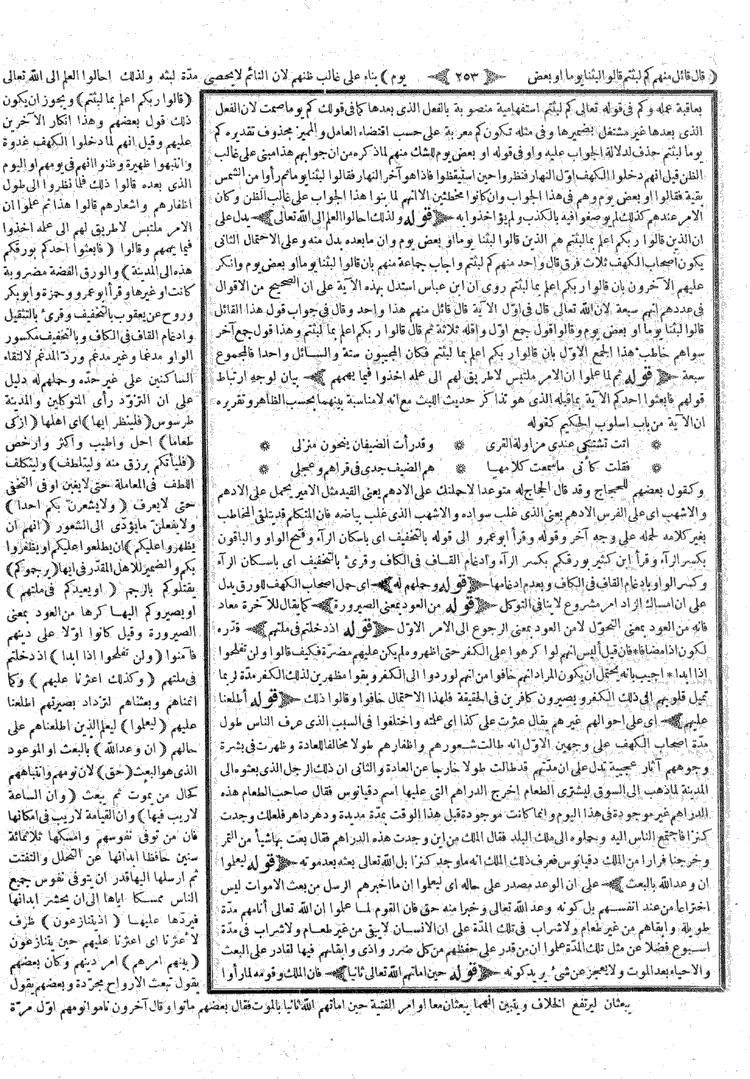 ﴿ قال قائل منهم كم لبثتم قالوا لبثنا يوما او بعض ﴿ ٢٥٣ ﴾ يوم ﴾ بناء على غالب ظنهم لان النائم لايحصى مدة لبثه ولذلك احالوا العلم الى الله تعالى
بعاقبة عمله وكم فى قوله تعالى كم لبثتم استفهامية منصوبة بالفعل الذى بعدها كما فى قولك كم يوما صمت لان الفعل
الذى بعدها غير مشتغل بضميرها وفى مثله تكون كم معربة على حسب اقتضاء العامل والمميز محذوف تقديره كم
يوما لبثتم حذف لدلالة الجواب عليه واو فى قوله او بعض يوم للشك منهم لما ذكره من ان جوابهم هذا مبنى على غالب
الظن قيل انهم دخلوا الكهف اول النهار فنظروا حين استيقظوا فاذا هو آخر النهار فقالوا لبثنا يوما ثم رأوا من الشمس
بقية فقالوا او بعض يوم وهم فى هذا الجواب وان كانوا مخطئين الا انهم لما بنوا هذا الجواب على غالب الظن وكان
الامر عندهم كذلك لم يوصفوا فيه بالكذب ولم يؤاخذوا به ﴿ قوله ولذلك احالوا العلم الى الله تعالى ﴾ يدل على
ان الذين قالوا ربكم اعلم بما لبثتم هم الذين قالوا لبثنا يوما او بعض يوم وان ما بعده بدل منه وعلى الاحتمال الثانى
يكون أصحاب الكهف ثلاث فرق قال واحد منهم كم لبثتم واجاب جماعة منهم بان قالوا لبثنا يوما او بعض يوم وانكر
عليهم الآخرون بان قالوا ربكم اعلم بما لبثتم روى ان ابن عباس استدل بهذه الآية على ان الصحيح من الاقوال
فى عددهم انهم سبعة لان الله تعالى قال فى اول الآية قال قائل منهم هذا واحد وقال فى جواب قول هذا القائل
قالوا لبثنا يوما او بعض يوم وقالوا قول جمع اول واقله ثلاثة ثم قال قالوا ربكم اعلم بما لبثتم وهذا قول جمع آخر
سواهم خاطب هذا الجمع الاول بان قالوا ربكم اعلم بما لبثتم فكان المجيبون ستة والسائل واحدا فالمجموع
سبعة ﴿ قوله ثم لما علموا ان الامر ملتبس لا طريق لهم الى علمه اخذوا فيما يهمهم ﴾ بيان لوجه ارتباط
قولهم فابعثوا احدكم الآية بما قبله الذى هو تذاكر حديث اللبث مع انه لامناسبة بينهما بحسب الظاهر وتقريره
ان الآية من باب اسلوب الحكيم كقوله
اتت تشتكى عندى مزاولة القرى * وقد رأت الضيفان ينحون منزلى
فقلت كأنى ماسمعت كلامها * هم الضيف جدى فى قراهم وعجلى
وكقول بعضهم للحجاج وقد قال الحجاج له متوعدا لاحملنك على الادهم يعنى القيد مثل الامير يحمل على الادهم
والاشهب اى على الفرس الادهم يعنى الذى غلب سواده والاشهب الذى غلب بياضه فان المتكلم قد تلقى المخاطب
بغير كلامه لحمله على وجه آخر وقوله وقرأ ابو عمرو الى قوله بالتخفيف اى باسكان الرآء وفتح الواو والباقون
بكسر الرآء وقرأ ابن كثير بورقكم بكسر الرآء وادغام القاف فى الكاف وقرئ بالتخفيف اى باسكان الرآء
وكسر الواو بادغام القاف فى الكاف وبعدم ادغامها ﴿ قوله وحملهم له ﴾ اى حمل اصحاب الكهف للورق يدل
على ان امساك الزاد امر مشروع لا ينافى التوكل ﴿ قوله من العود بمعنى الصيرورة ﴾ كما يقال للآخرة معاد
فانه من العود بمعنى التحول لا من العود بمعنى الرجوع الى الامر الاول ﴿ قوله اذ دخلتم فى ملتهم ﴾ قدره
لكون اذا مضافا * فان قيل اليس انهم لو اكرهوا على الكفر حتى اظهروه لم يكن عليهم مضرة فكيف قالوا ولن تفلحوا
اذا ابدا * اجيب بانه يحتمل ان يكون المراد انهم خافوا من انهم لو ردوا الى الكفر وبقوا مظهرين لذلك الكفر مدة لربما
تميل قلوبهم الى ذلك الكفر ويصيرون كافرين فى الحقيقة فلهذا الاحتمال خافوا وقالوا ذلك ﴿ قوله أطلعنا
عليهم ﴾ اى على احوالهم غيرهم يقال عثرت على كذا اى علمته واختلفوا فى السبب الذى عرف الناس طول
مدة اصحاب الكهف على وجهين الاول انه طالت شعورهم واظفارهم طولا مخالفا للعادة وظهرت فى بشرة
وجوههم آثار عجيبة تدل على ان مدتهم قد طالت طولا خارجا عن العادة والثانى ان ذلك الرجل الذى بعثوه الى
المدينة لما ذهب الى السوق ليشترى الطعام اخرج الدراهم التى عليها اسم دقيانوس فقال صاحب الطعام هذه
الدراهم غير موجودة فى هذا اليوم وانما كانت موجودة قبل هذا الوقت بمدة مديدة ودهر داهر فلعلك وجدت
كنزا فاجتمع الناس اليه وحملوه الى ملك البلد فقال الملك من اين وجدت هذه الدراهم فقال بعت بها شيأ من التمر
وخرجنا فرارا من الملك دقيانوس فعرف ذلك الملك انه ما وجد كنزا بل الله تعالى بعثه بعد موته ﴿ قوله ليعلموا
ان وعد الله بالبعث ﴾ على ان الوعد مصدر على حاله اى ليعلموا ان ما اخبرهم الرسل من بعث الاموات ليس
اختراعا من عند انفسهم بل كونه وعد الله تعالى وخبرا منه حق فان القوم لما علموا ان الله تعالى أنامهم مدة
طويلة وابقاهم من غير طعام ولا شراب فى تلك المدة على ان الانسان لا يبقى من غير طعام ولا شراب فى مدة
اسبوع فضلا عن مثل تلك المدة علموا ان من قدر على حفظهم من كل ضرر واذى وابقائهم فيها لقادر على البعث
والاحياء بعد الموت ولا يعجز عن شئ يريد كونه ﴿ قوله حين اماتهم الله تعالى ثانيا ﴾ فان الملك وقومه لما رأوا
﴿ قالوا ربكم اعلم بما لبثتم ﴾ ويجوز ان يكون
ذلك قول بعضهم وهذا انكار الآخرين
عليهم وقيل انهم لما دخلوا الكهف غدوة
وانتبهوا ظهيرة وظنوا انهم فى يومهم او اليوم
الذى بعده قالوا ذلك فلما نظروا الى طول
اظفارهم واشعارهم قالوا هذا ثم علموا ان
الامر ملتبس لا طريق لهم الى علمه اخذوا
فيما يهمهم وقالوا ﴿ فابعثوا احدكم بورقكم
هذه الى المدينة ﴾ والورق الفضة مضروبة
كانت او غيرها وقرأ ابو عمرو وحمزة وابو بكر
وروح عن يعقوب بالتخفيف وقرئ بالتثقيل
وادغام القاف فى الكاف وبالتخفيف مكسور
الواو مدغما وغير مدغم ورد المدغم لالتقاء
الساكنين على غير حده وحملهم له دليل
على ان التزود رأى المتوكلين والمدينة
طرسوس ﴿ فلينظر ايها ﴾ اى اهلها ﴿ ازكى
طعاما ﴾ احل واطيب واكثر وارخص
﴿ فليأتكم برزق منه وليتلطف ﴾ وليتكلف
اللطف فى المعاملة حتى لا يغبن او فى التخفى
حتى لا يعرف ﴿ ولا يشعرن بكم احدا ﴾
ولا يفعلن ما يؤدى الى الشعور ﴿ انهم ان
يظهروا عليكم ﴾ ان يطلعوا عليكم او يظفروا
بكم والضمير للاهل المقدر فى ايها ﴿ يرجموكم ﴾
يقتلوكم بالرجم ﴿ او يعيدوكم فى ملتهم ﴾
او يصيروكم اليها كرها من العود بمعنى
الصيرورة وقيل كانوا اولا على دينهم
فآمنوا ﴿ ولن تفلحوا اذا ابدا ﴾ اذ دخلتم
فى ملتهم ﴿ وكذلك اعثرنا عليهم ﴾ وكما
انمناهم وبعثناهم لتزداد بصيرتهم اطلعنا
عليهم ﴿ ليعلموا ﴾ ليعلم الذين اطلعناهم على
حالهم ﴿ ان وعد الله ﴾ بالبعث او الموعود
الذى هو البعث ﴿ حق ﴾ لان نومهم وانتباههم
كحال من يموت ثم يبعث ﴿ وان الساعة
لا ريب فيها ﴾ وان القيامة لا ريب فى امكانها
فان من توفى نفوسهم وامسكها ثلاثمائة
سنين حافظا ابدانها عن التحلل والتفتت
ثم ارسلها اليها قدر ان يتوفى نفوس جميع
الناس ممسكا اياها الى ان يحشر ابدانها
فيردها عليها ﴿ اذ يتنازعون ﴾ ظرف
لاعثرنا اى اعثرنا عليهم حين يتنازعون
﴿ بينهم امرهم ﴾ امر دينهم وكان بعضهم
يقول تبعث الارواح مجردة وبعضهم يقول
يبعثان ليرتفع الخلاف ويتبين انهما يبعثان معا او امر الفتية حين اماتهم الله ثانيا بالموت فقال بعضهم ماتوا وقال آخرون ناموا نومهم اول مرة